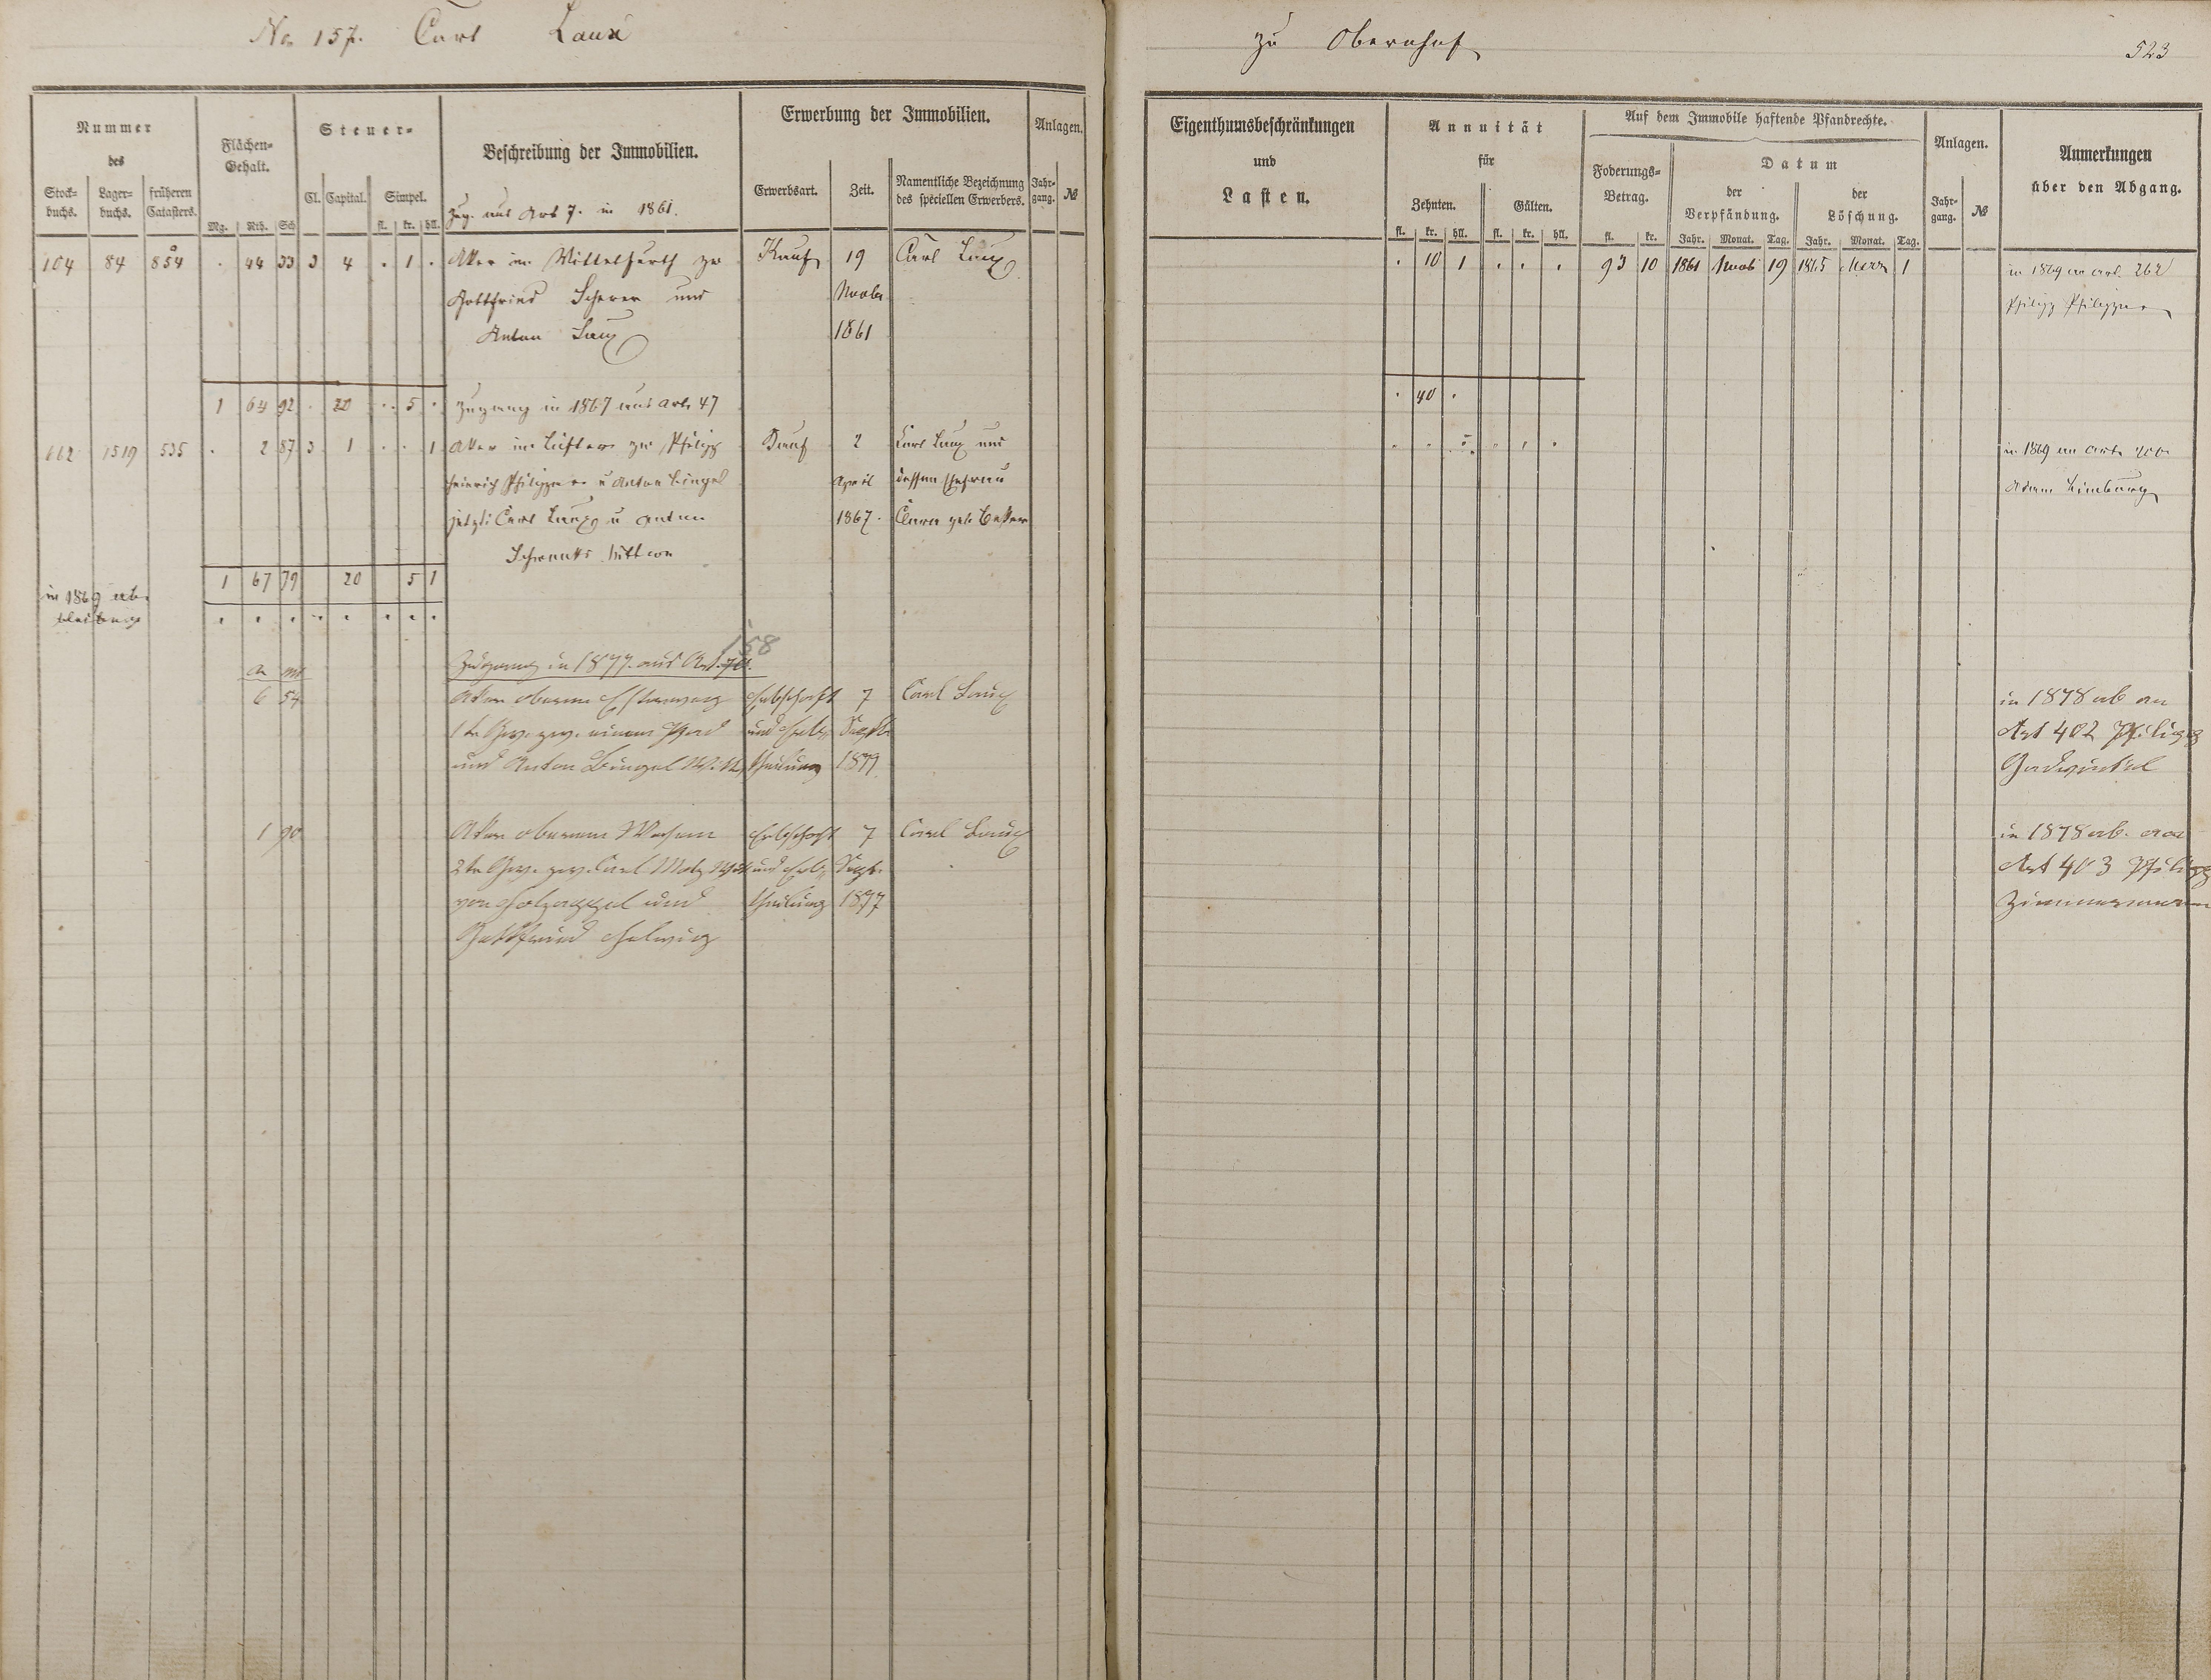 No 157. Carl Laux
zu Obernhof
523
Nummer
des
Stock-
buchs.
Lager-
buchs.
früheren
Catasters.
Flächen-
Gehalt.
Mg. Rth. Sch
Steuer-
Cl. Capital. Simpel.
fl. kr. hll.
Beschreibung der Immobilien.
Zug. aus Art 7. in 1861.
Erwerbung der Immobilien.
Erwerbsart. Zeit. Namentliche Bezeichnung
des speciellen Erwerbers.
Anlagen.
Jahr-
gang. №
Eigenthumsbeschränkungen
und
Lasten.
Annuität
für
Zehnten. Gülten.
fl. kr. hll. fl. kr. hll.
Auf dem Immobile haftende Pfandrechte.
Foderungs-
Betrag.
fl. kr.
Datum
der
Verpfändung.
der
Löschung.
Jahr. Monat. Tag. Jahr. Monat. Tag.
Anlagen.
Jahr-
gang. №
Anmerkungen
über den Abgang.
104 84 854 . 44 33 3 4 . 1 . Aker im zw Kauf 19 Carl Laux . 10 1 . . . 93 10 1861 Novb 19 1865 Merz 1 in 1869 an art. 262
Gottfried Scherer und Novbr
Anton Laux 1861
1 64 92 . 20 . . 5 . Zugang in 1867 aus Art. 47 . 40 .
662 1519 535 . 2 87 3 1 . . 1 Aker im zw Philipp Kauf 2 Carl Laux und in 1869 an Art.
Heinrich u Anton Bingel April dessen Ehefrau Adam Limburg
jetzt: Carl Laux u Anton 1867. Clara geb.
Wittwe
1 67 79 20 5 1
in 1869 ab.
158
Zugang in 1877. aus Art.
a m
6 54 Aker oberm Erbschaft 7 Carl Laux in 1878 ab an
1te Gew. zw. einem Pfad und Erb- Septbr Art 402 Philipp
und Anton Bingel theilung 1877.
1 90 Aker oberm Erbschaft 7 Carl Laux in 1878 ab. an
2te Gew. zw. Carl und Erb- Septr. Art 403 Philipp
von Holzappel und theilung 1877 Zimmermann
Gottfried Helwig